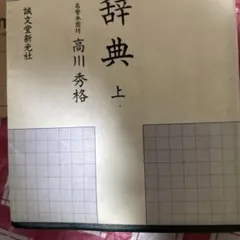 辞典
上
名誉本因坊
高川秀格
誠文堂新光社